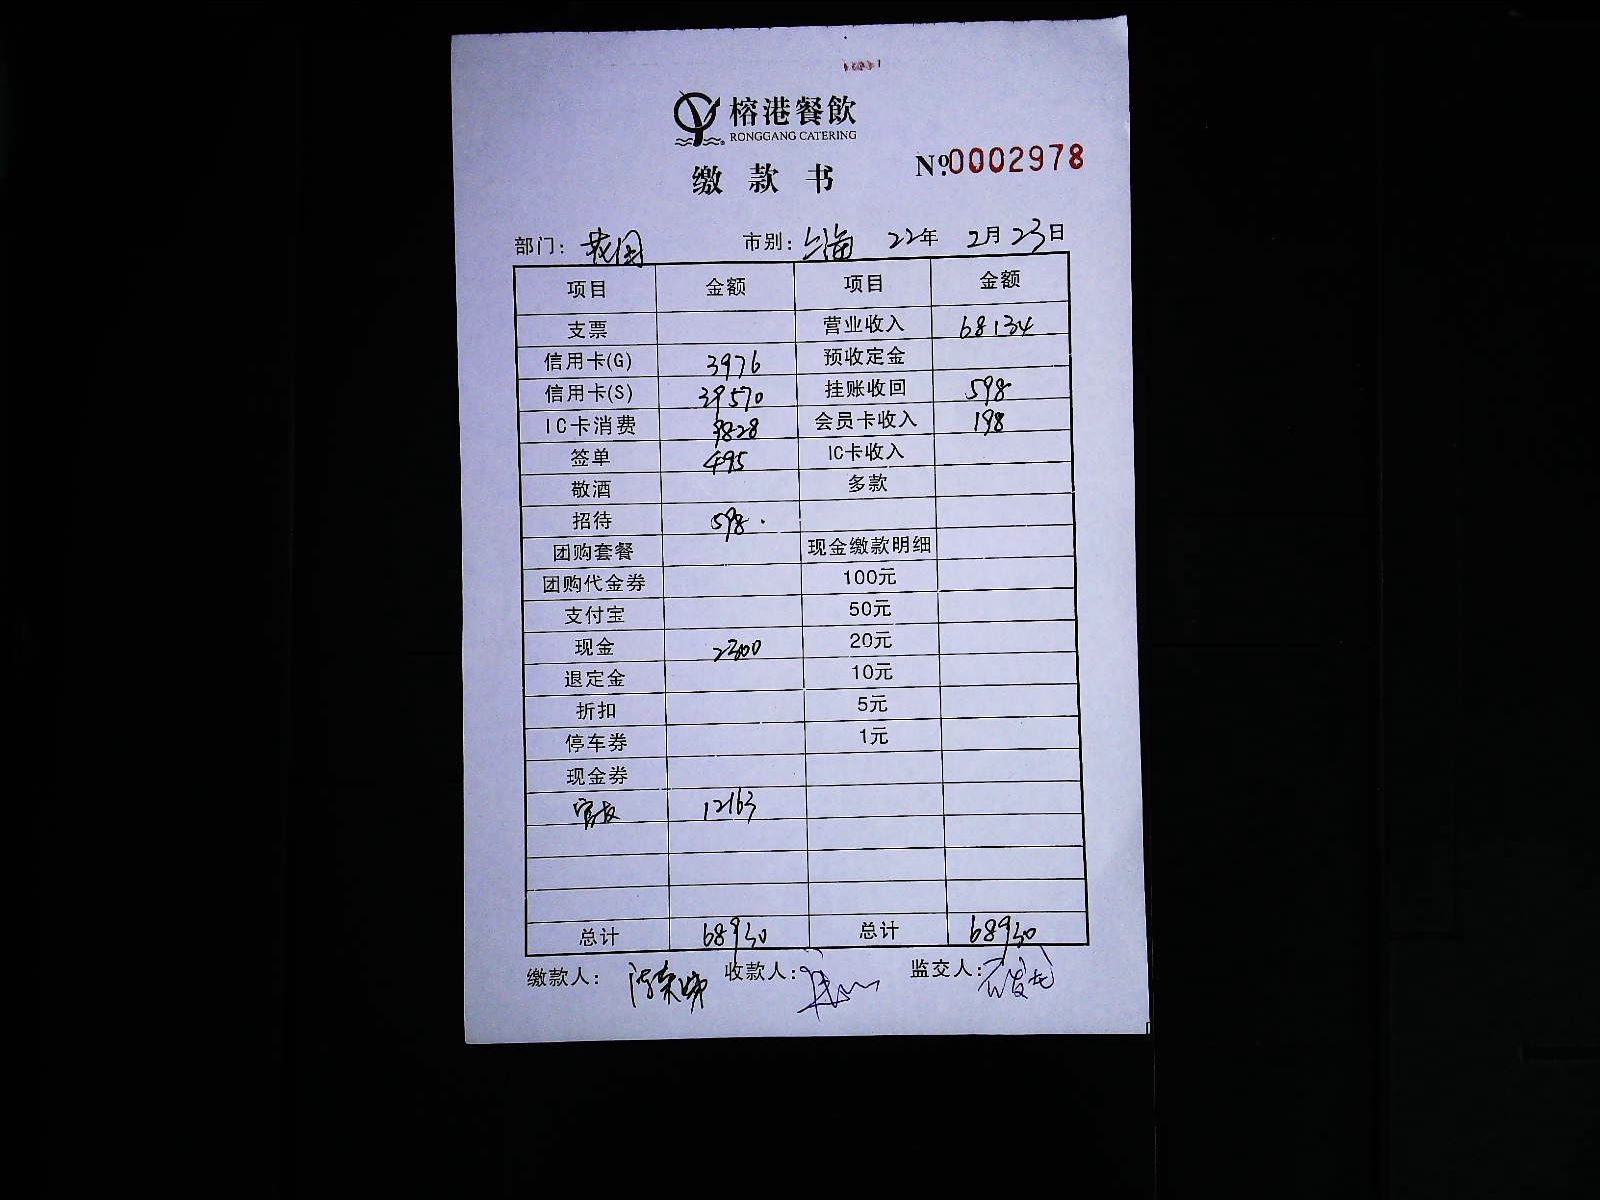 榕港餐飲
RONGGANG CATERING
缴款书
Nº.0002978
部门: 市别: 上海 22年 2月 23日
项目 金额 项目 金额
支票 营业收入 68134
信用卡(G) 3976 预收定金
信用卡(S) 39570 挂账收回 598
IC卡消费 9828 会员卡收入 198
签单 495 IC卡收入
敬酒 多款
招待 598.
团购套餐 现金缴款明细
团购代金券 100元
支付宝 50元
现金 2300 20元
退定金 10元
折扣 5元
停车券 1元
现金券
12163
总计 68930 总计 68930
缴款人: 收款人: 监交人: